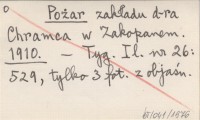 Pożar zakładu d-ra
Chramca w Zakopanem.
1910. – Tyg. Il. nr 26:
529, tylko 3 fot. z objaśn.